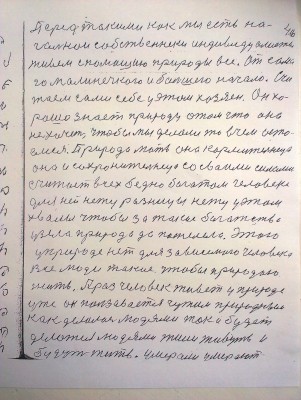 Перед такими как мы есть на-
чалном собственнем индивидуалисты
живем спомощию природы все. От само
го малинечкого и болшего начало. Счи
таем сами себе у этом хозяен. Он хо-
рошо знает природу отом что она
нехочит, чтобы мы делали то вчем асто-
емся. Природа мать она кормителница
она и сохронителница со своими силами
считает всех бедно богатом человеке
для ней нету разницы нету у этом
хвали чтобы за такие богатство
цвела природа да потелела. Этого
у природе нет для зависимию человека
все люди такие, чтобы природаю
жить. Праз человек живет у природе
уже он показвается чужим природным
как делился людями так и будет
делются людями жили живуть и
будут жить. Умерали умерают